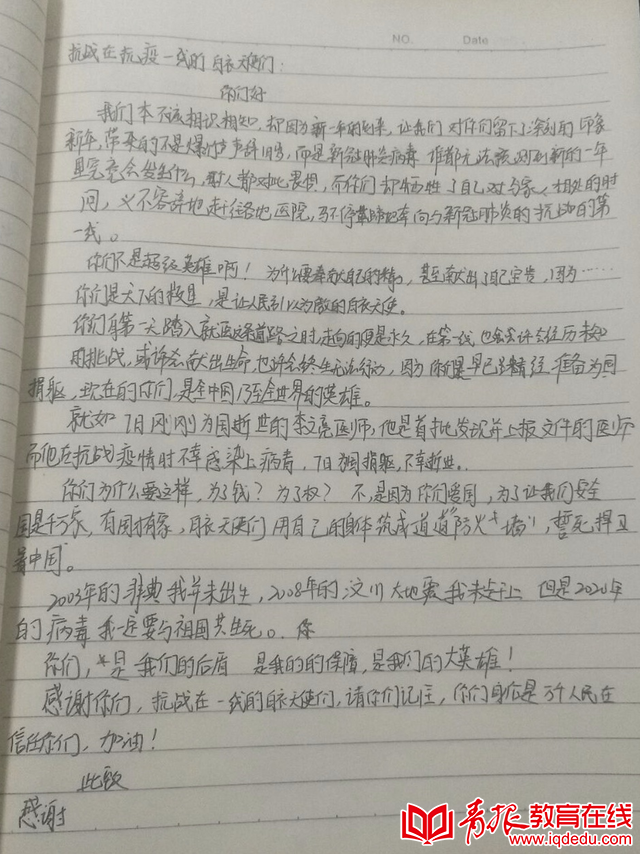 NO.
Date
抗战在抗疫一线的白衣天使们：
你们好
我们本不该相识相知，却因为新一年的到来，让我们对你们留下了深刻的印象
新年，带来的不是爆竹声辞旧岁，而是新冠肺炎病毒 谁都无法预测到新的一年
里究竟会发生什么，别人都对此畏惧，而你们却牺牲了自己对与家人相处的时
间，义不容辞地赶往各地医院，马不停蹄地奔向与新冠肺炎的抗战的第
一线。
你们不是超级英雄啊！为什么要奉献自己的精力，甚至献出了自己宝贵，因为……
你们是天下的救星，是让人民引以为傲的白衣天使。
你们自第一天踏入就医这条道路之时，走向的便是永久，在第一线，也会会许会经历未知
的挑战，或许会献出生命，也许会终生无法行动，因为你们早已经准备为国
捐躯，现在的你们，是全中国乃至全世界的英雄。
就如7日刚刚为国逝世的李文亮医师，他是首批发现并上报文件的医师
而他在抗战疫情时不幸感染上病毒，7日为国捐躯，不幸逝世。
你们为什么要这样，为了钱？为了权？ 不，是因为你们爱国，为了让我们安全
国是千万家，有国才有家，白衣天使们用自己的身体筑成道道“防火墙”，誓死捍卫
着中国。
2003年的非典我并未出生，2008年的汶川大地震我未赶上 但是2020年
的病毒我一定要与祖国共生死。你
你们，是我们的后盾 是我的的保障，是我们的大英雄！
感谢你们，抗战在一线的白衣天使们，请你们记住，你们身后是万千人民在
信任你们，加油！
此致
感谢
青报教育在线
www.iqdedu.com